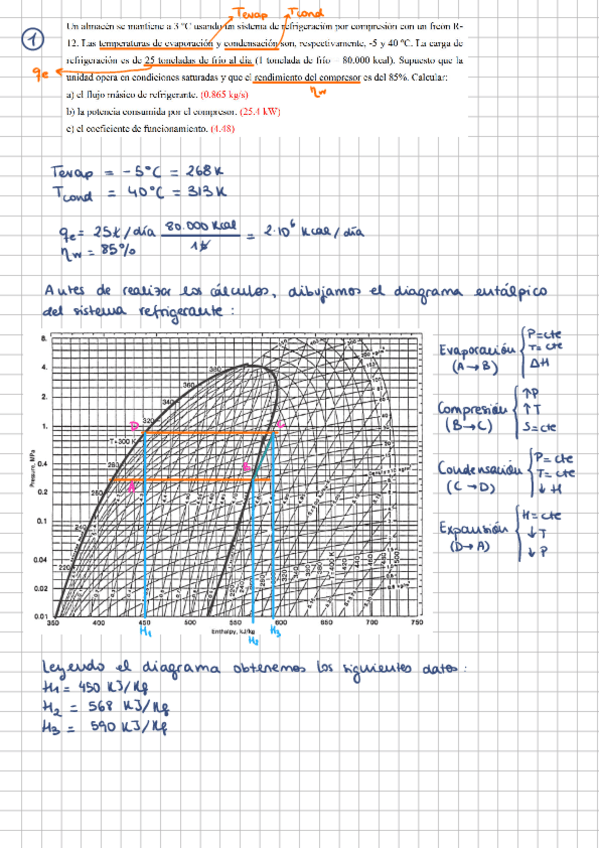 Tevap Tcond
1
Un almacén se mantiene a 3 ºC usando un sistema de refrigeración por compresión con un freón R-
12. Las temperaturas de evaporación y condensación son, respectivamente, -5 y 40 ºC. La carga de
refrigeración es de 25 toneladas de frío al día (1 tonelada de frío = 80.000 kcal). Supuesto que la
qe
unidad opera en condiciones saturadas y que el rendimiento del compresor es del 85%. Calcular:
ηw
a) el flujo másico de refrigerante. (0.865 kg/s)
b) la potencia consumida por el compresor. (25.4 kW)
c) el coeficiente de funcionamiento. (4.48)
Tevap = -5°C = 268 K
Tcond = 40°C = 313 K
qe = 25t/día 80.000 Kcal / 1t = 2·10⁶ Kcal/día
ηw = 85%
Antes de realizar los cálculos, dibujamos el diagrama entálpico
del sistema refrigerante:
Evaporación (A→B) { P=cte T=cte ΔH
Compresión (B→C) { ↑P ↑T S=cte
Condensación (C→D) { P=cte T=cte ↓H
Expansión (D→A) { H=cte ↓T ↓P
Pressure, MPa
8.
4.
2.
1.
0.4
0.2
0.1
0.04
0.02
0.01
T=300 K
320
340
360
D
C
A
B
350 400 450 500 550 600 650 700 750
H₁ H₂ H₃
Enthalpy, kJ/kg
Leyendo el diagrama obtenemos los siguientes datos:
H₁ = 450 KJ/Kg
H₂ = 568 KJ/Kg
H₃ = 590 KJ/Kg